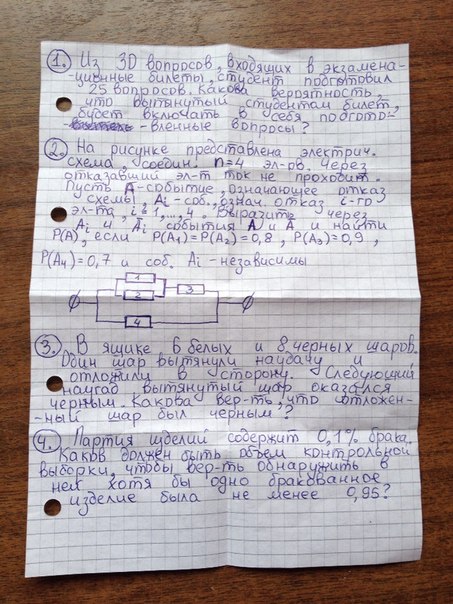 1. Из 30 вопросов, входящих в экзамена-
ционные билеты, студент подготовил
25 вопросов. Какова вероятность,
что вытянутый студентам билет,
будет включать в себя подгото-
вленные вопросы?
2. На рисунке представлена электрич.
схема, соедин. n=4 эл-ов. Через
отказавший эл-т ток не проходит.
Пусть A-событие, означающее отказ
схемы, Ai-соб., означ. отказ i-го
эл-та, i=1,...,4. Выразить через
Ai и A̅i события A и A̅ и найти
P(A), если P(A1)=P(A2)=0,8, P(A3)=0,9,
P(A4)=0,7 и соб. Ai-независимы
1
2
3
4
3. В ящике 6 белых и 8 черных шаров.
Один шар вытянули наудачу и
отложили в сторону. Следующий
наугад вытянутый шар оказался
черным. Какова вер-ть, что отложен-
ный шар был черным?
4. Партия изделий содержит 0,1% брака.
Каков должен быть объем контрольной
выборки, чтобы вер-ть обнаружить в
ней хотя бы одно бракованное
изделие была не менее 0,95?